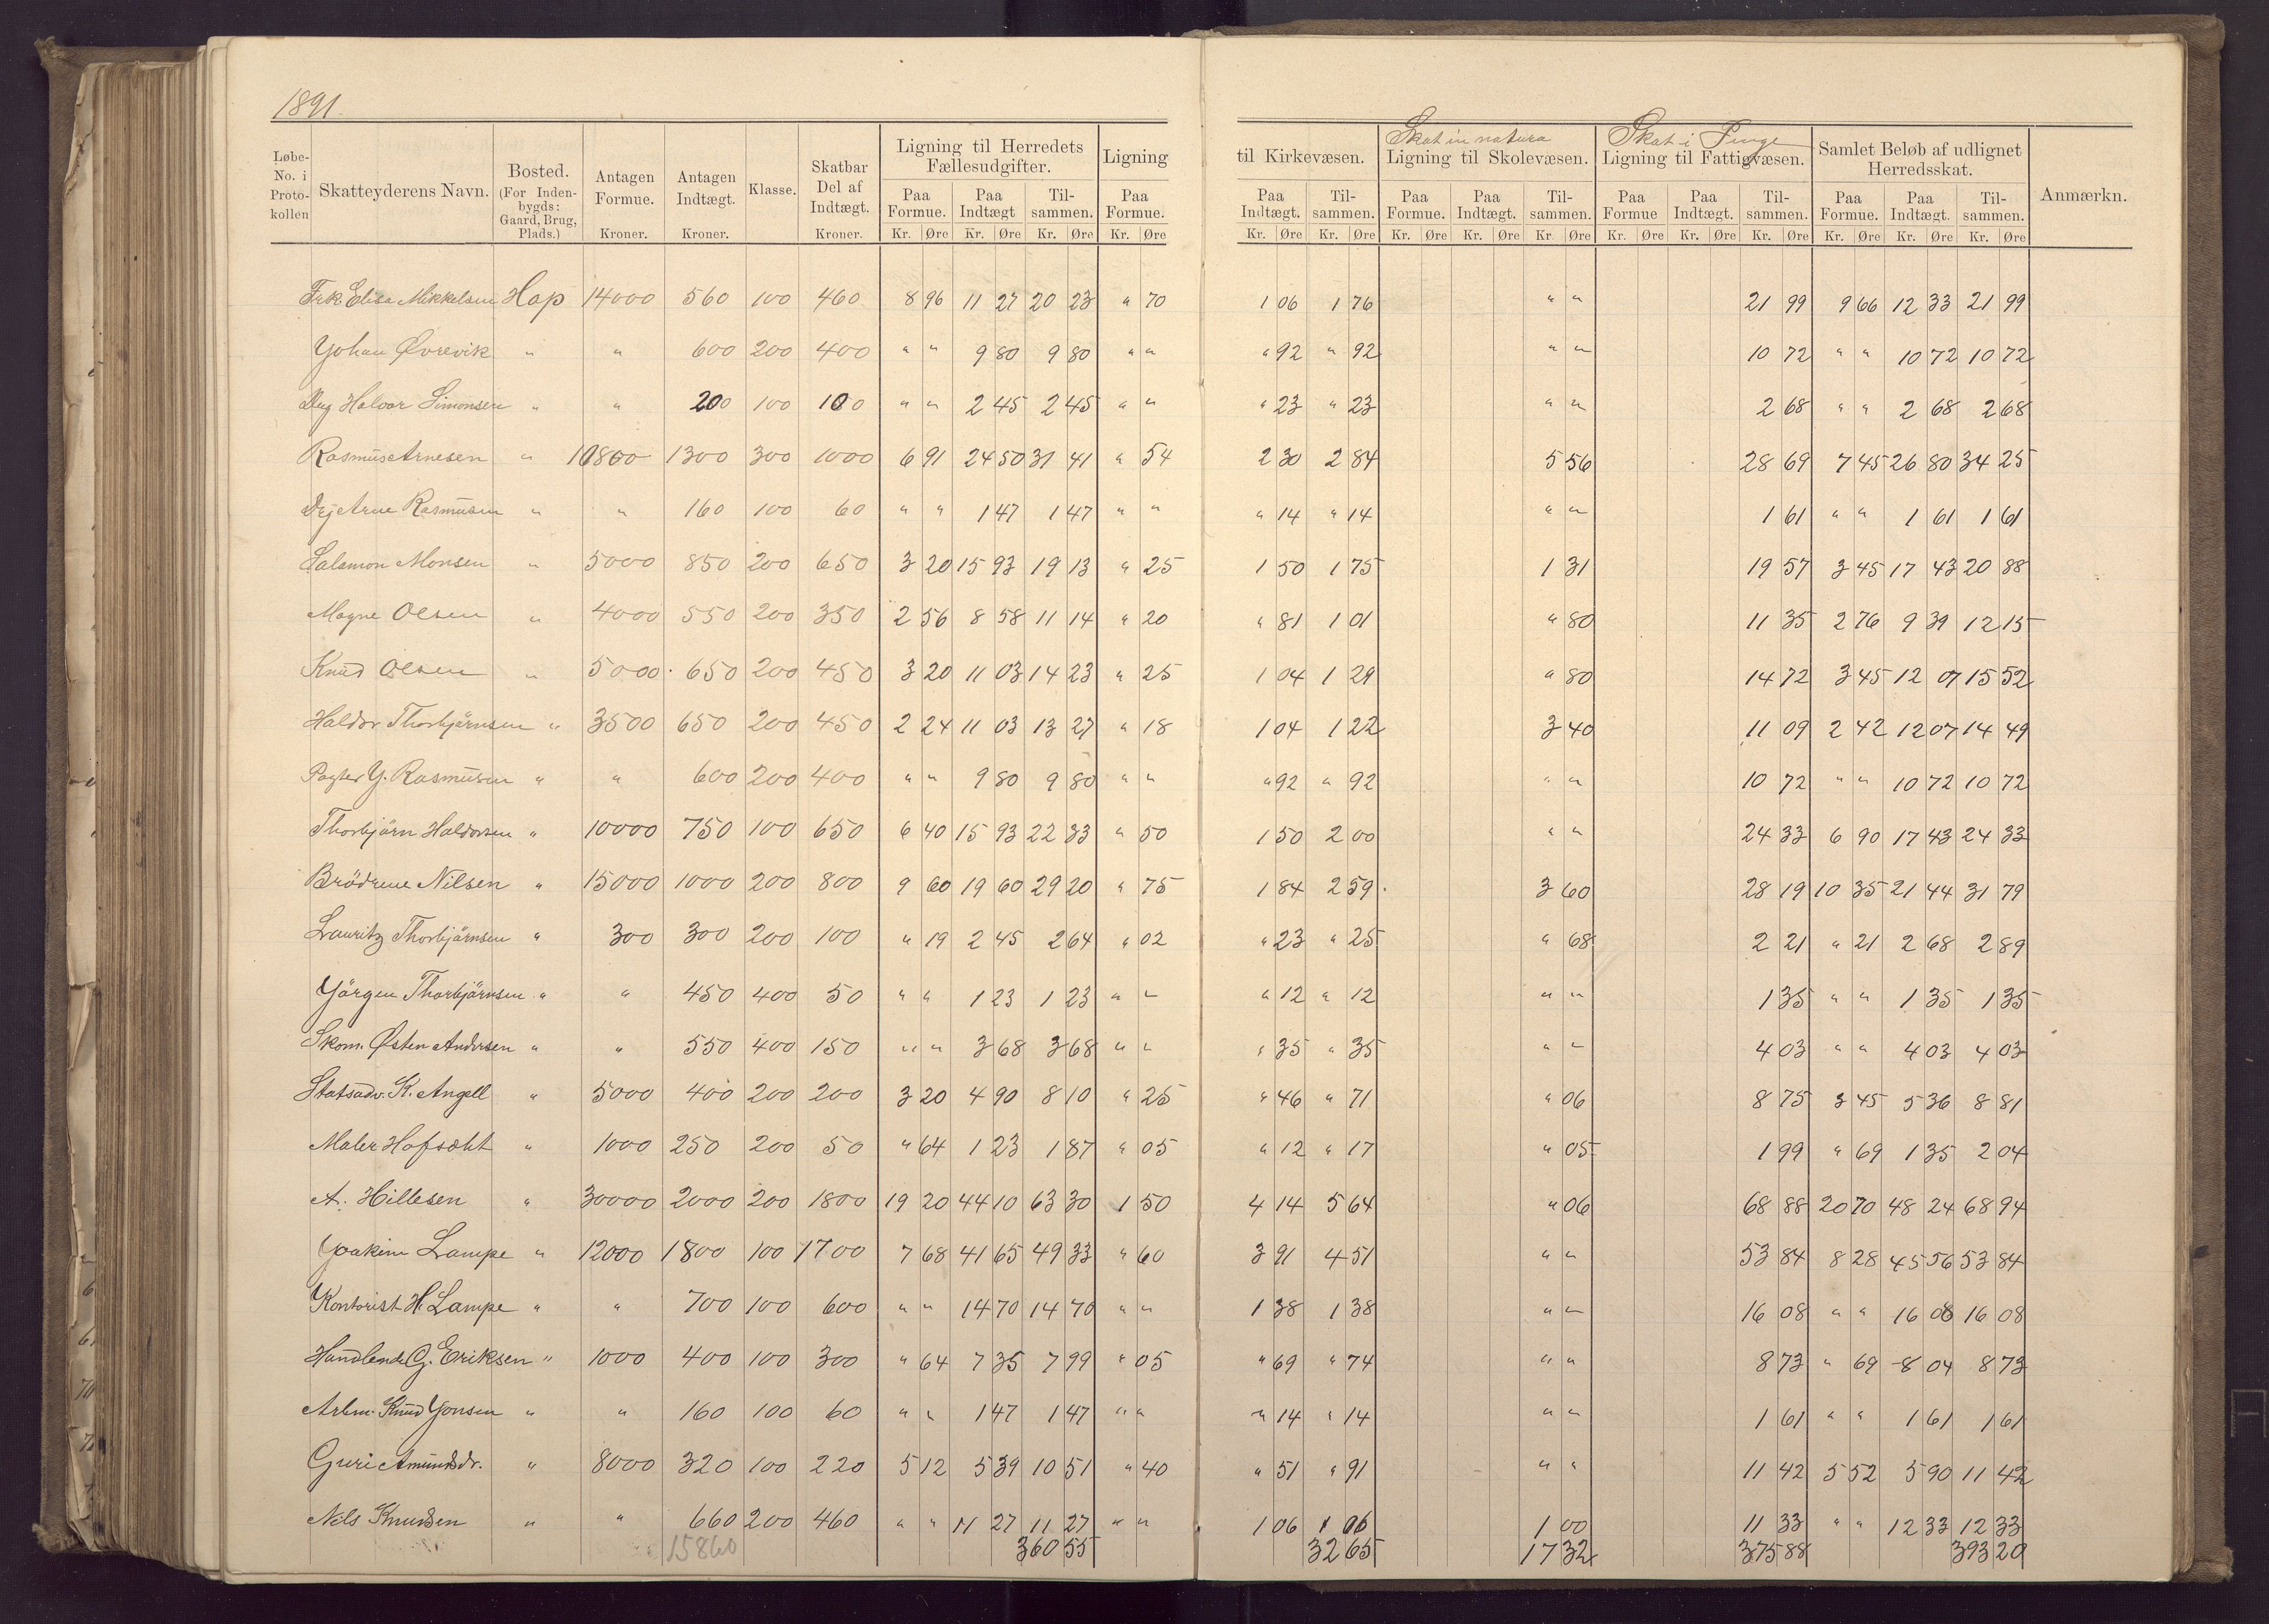 1891.
Skat in natura Skat i Penge
Løbe-No. i Proto-kollen Skatteyderens Navn. Bosted. (For Inden-bygds: Gaard, Brug, Plads.) Antagen Formue. Antagen Indtægt. Klasse. Skatbar Del af Indtægt. Ligning til Herredets Fællesudgifter. Ligning til Kirkevæsen. Ligning til Skolevæsen. Ligning til Fattigvæsen. Samlet Beløb af udlignet Herredsskat. Anmærkn.
Paa Formue. Paa Indtægt Til-sammen. Paa Formue. Paa Indtægt. Til-sammen. Paa Formue. Paa Indtægt. Til-sammen. Paa Formue Paa Indtægt. Til-sammen. Paa Formue. Paa Indtægt. Til-sammen.
Kroner. Kroner. Kroner. Kr. Øre Kr. Øre Kr. Øre Kr. Øre Kr. Øre Kr. Øre Kr. Øre Kr. Øre Kr. Øre Kr. Øre Kr. Øre Kr. Øre Kr. Øre Kr. Øre Kr. Øre
Frk Elisa Mikkelsen Hop 14000 560 100 460 8 96 11 27 20 23 " 70 1 06 1 76 " " 21 99 9 66 12 33 21 99
Johan Øvrevik " " 600 200 400 " " 9 80 9 80 " " " 92 " 92 " " 10 72 " " 10 72 10 72
Halvor Simonsen " " 200 100 100 " " 2 45 2 45 " " " 23 " 23 " " 2 68 " " 2 68 2 68
Rasmus Arnesen " 10800 1300 300 1000 6 91 24 50 31 41 " 54 2 30 2 84 5 56 28 69 7 45 26 80 34 25
Arne Rasmusen " " 160 100 60 " " 1 47 1 47 " " " 14 " 14 " " 1 61 " " 1 61 1 61
Salamon Monsen " 5000 850 200 650 3 20 15 93 19 13 " 25 1 50 1 75 1 31 19 57 3 45 17 43 20 88
Magne Olsen " 4000 550 200 350 2 56 8 58 11 14 " 20 " 81 1 01 " 80 11 35 2 76 9 39 12 15
Knud Olsen " 5000 650 200 450 3 20 11 03 14 23 " 25 1 04 1 29 " 80 14 72 3 45 12 07 15 52
Haldor Thorbjørnsen " 3500 650 200 450 2 24 11 03 13 27 " 18 1 04 1 22 3 40 11 09 2 42 12 07 14 49
Pagter J. Rasmusen " " 600 200 400 " " 9 80 9 80 " " " 92 " 92 " " 10 72 " " 10 72 10 72
Thorbjörn Haldorsen " 10000 750 100 650 6 40 15 93 22 33 " 50 1 50 2 00 " " 24 33 6 90 17 43 24 33
Brödrene Nilsen " 15000 1000 200 800 9 60 19 60 29 20 " 75 1 84 2 59 3 60 28 19 10 35 21 44 31 79
Lauritz Thorbjörnsen " 300 300 200 100 " 19 2 45 2 64 " 02 " 23 " 25 " 68 2 21 " 21 2 68 2 89
Jörgen Thorbjörnsen " " 450 400 50 " " 1 23 1 23 " " " 12 " 12 " " 1 35 " " 1 35 1 35
Skom. Østen Andersen " " 550 400 150 " " 3 68 3 68 " " " 35 " 35 " " 4 03 " " 4 03 4 03
Statsadv. K. Angell " 5000 400 200 200 3 20 4 90 8 10 " 25 " 46 " 71 " 06 8 75 3 45 5 36 8 81
Maler Hofsøht " 1000 250 200 50 " 64 1 23 1 87 " 05 " 12 " 17 " 05 1 99 " 69 1 35 2 04
A. Hillesen " 30000 2000 200 1800 19 20 44 10 63 30 1 50 4 14 5 64 " 06 68 88 20 70 48 24 68 94
Joakim Lampe " 12000 1800 100 1700 7 68 41 65 49 33 " 60 3 91 4 51 " " 53 84 8 28 45 56 53 84
Kontorist H. Lampe " " 700 100 600 " " 14 70 14 70 " " 1 38 1 38 " " 16 08 " " 16 08 16 08
Handlende G. Eriksen " 1000 400 100 300 " 64 7 35 7 99 " 05 " 69 " 74 " " 8 73 " 69 8 04 8 73
Arbm. Knud Jonsen " " 160 100 60 " " 1 47 1 47 " " " 14 " 14 " " 1 61 " " 1 61 1 61
Guri Amundsdr. " 8000 320 100 220 5 12 5 39 10 51 " 40 " 51 " 91 " " 11 42 5 52 5 90 11 42
Nils Knudsen " " 660 200 460 " " 11 27 11 27 " " 1 06 1 06 1 00 11 33 " " 12 33 12 33
15860 360 55 32 65 17 32 375 88 393 20